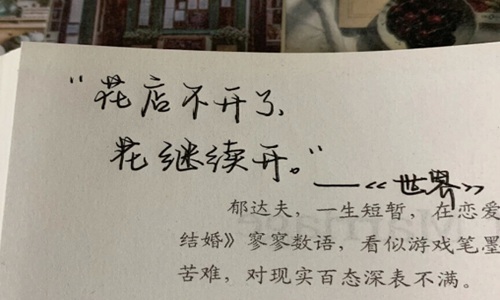 “花店不开了、
花继续开。”
——《世界》
郁达夫，一生短暂，在恋爱
结婚》寥寥数语，看似游戏笔墨
苦难，对现实百态深表不满。